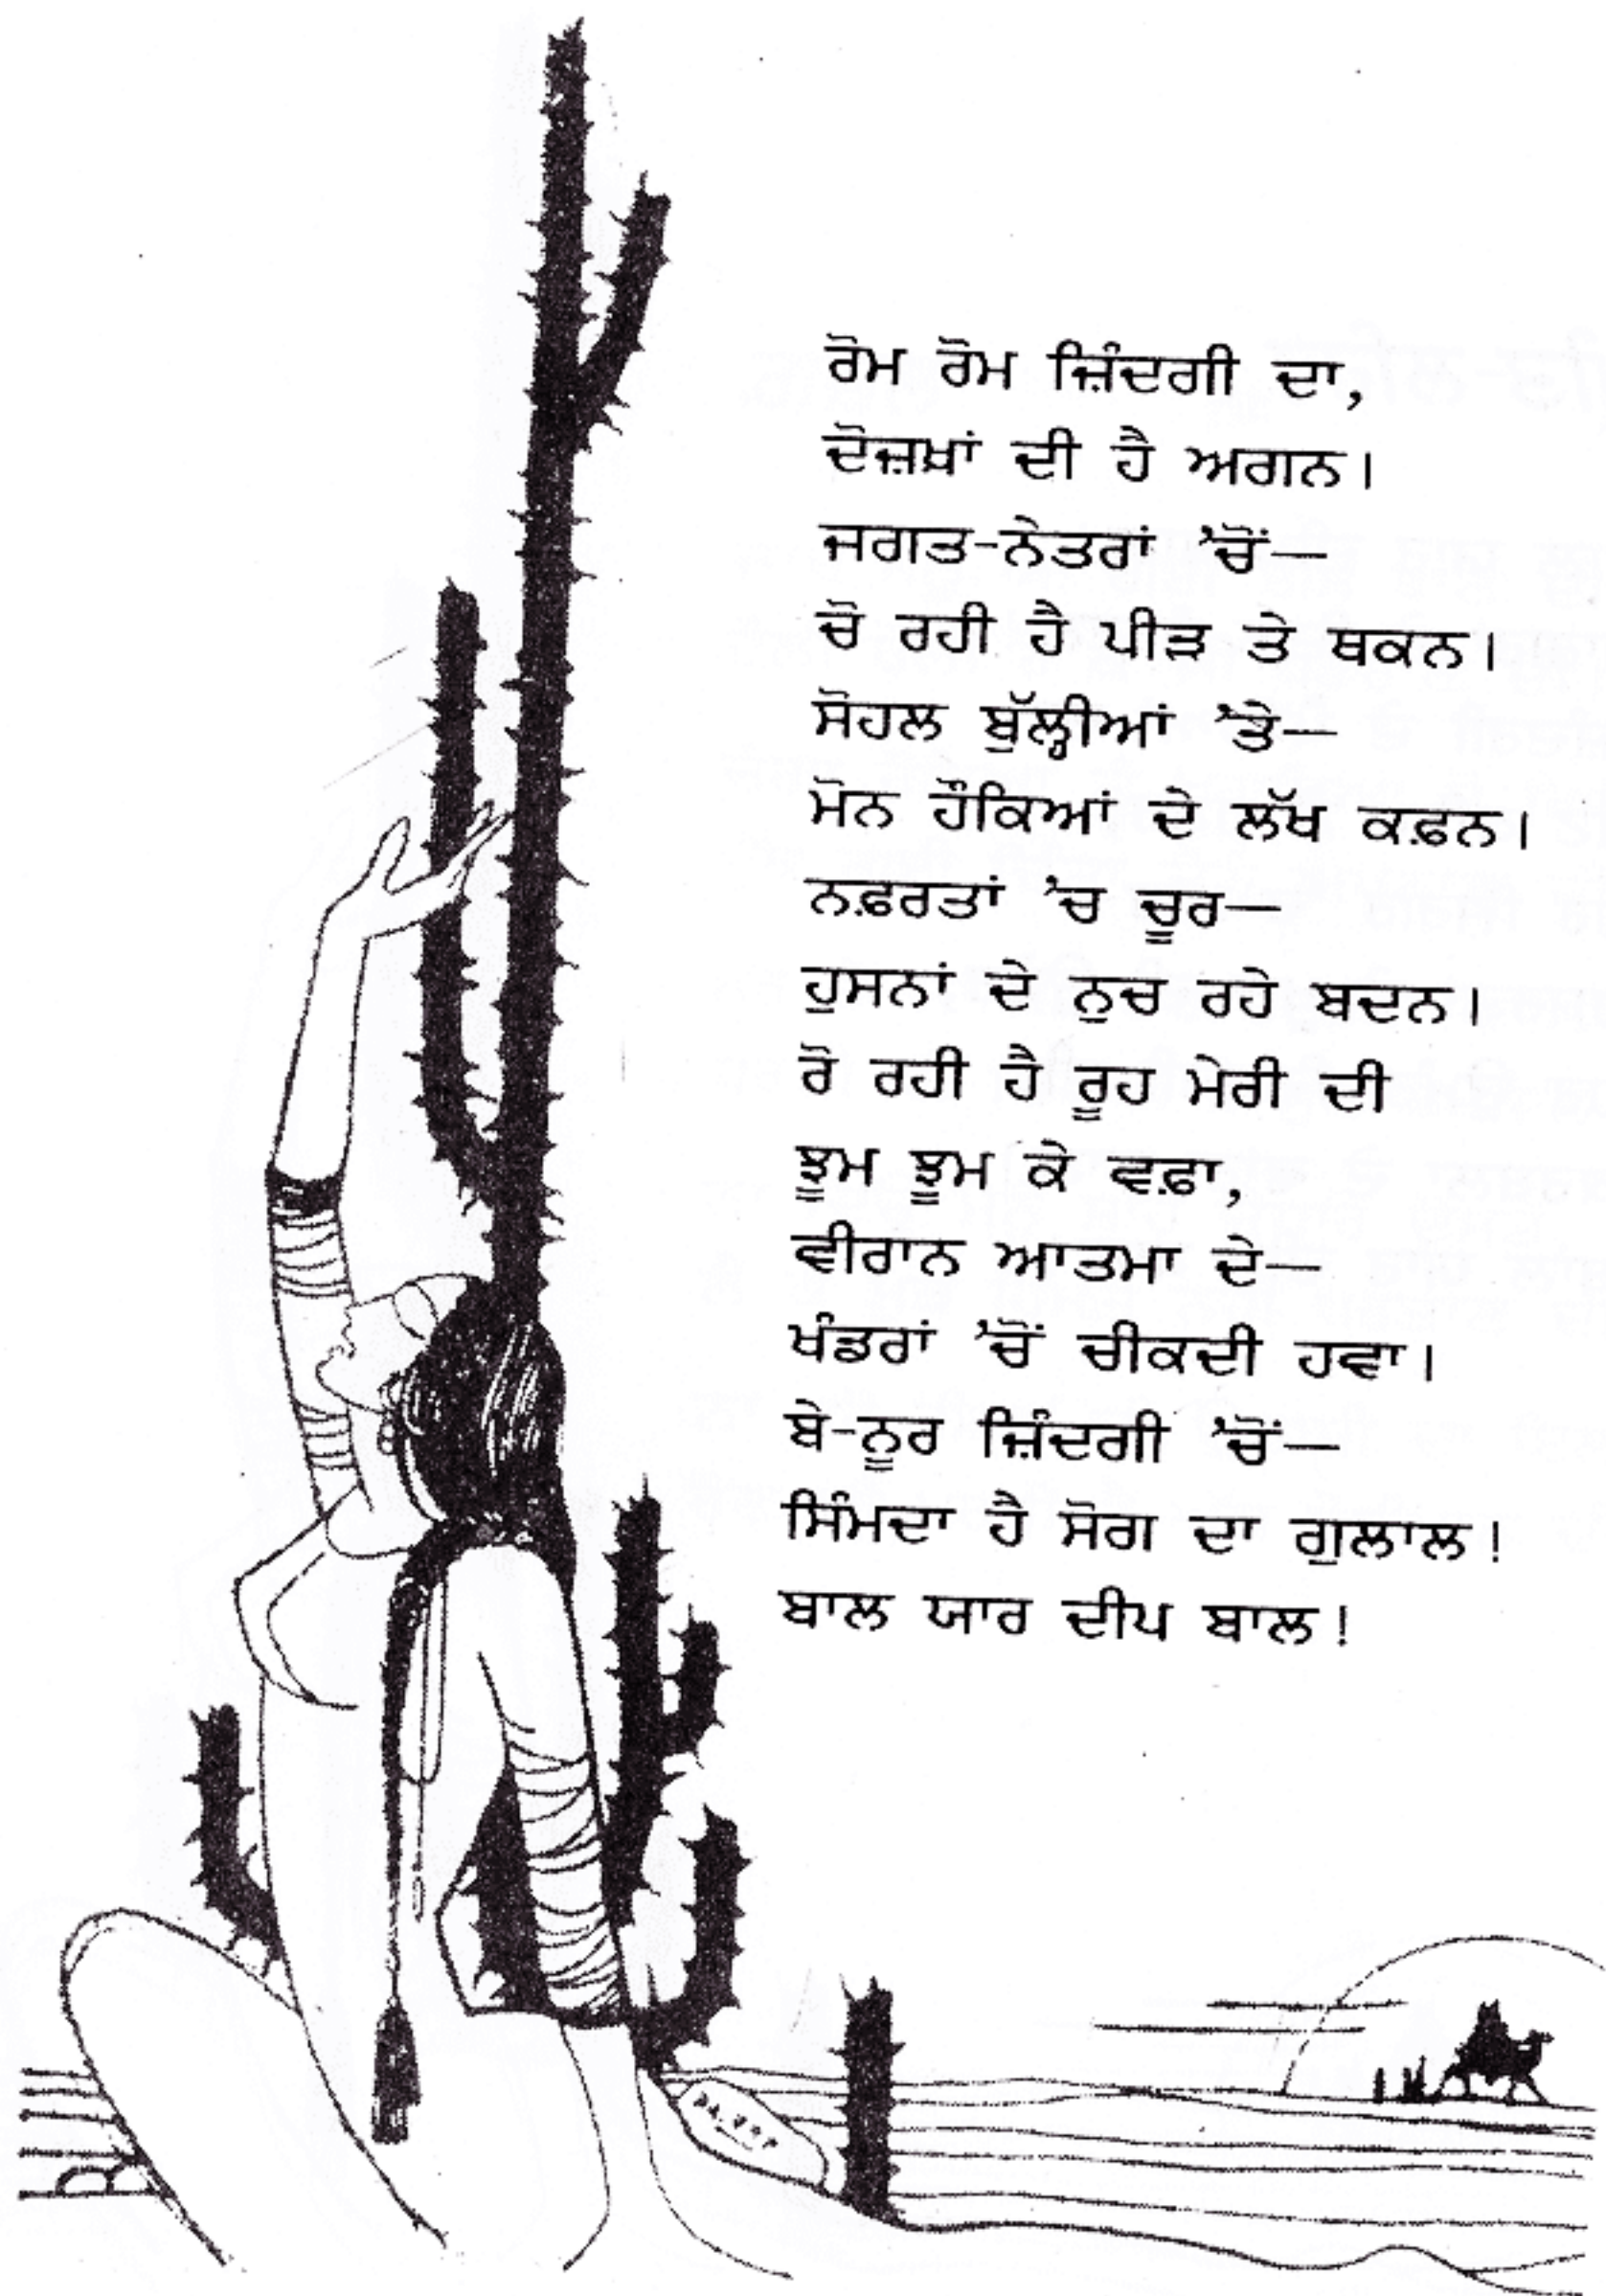 ਰੋਮ ਰੋਮ ਜ਼ਿੰਦਗੀ ਦਾ,
ਦੋਜ਼ਖ਼ਾਂ ਦੀ ਹੈ ਅਗਨ।
ਜਗਤ-ਨੇਤਰਾਂ 'ਚੋਂ—
ਚੋ ਰਹੀ ਹੈ ਪੀੜ ਤੇ ਥਕਨ।
ਸੋਹਲ ਬੁੱਲ੍ਹੀਆਂ 'ਤੇ—
ਮੋਨ ਹੌਕਿਆਂ ਦੇ ਲੱਖ ਕਫ਼ਨ।
ਨਫ਼ਰਤਾਂ 'ਚ ਚੂਰ—
ਹੁਸਨਾਂ ਦੇ ਨੁਚ ਰਹੇ ਬਦਨ।
ਰੋ ਰਹੀ ਹੈ ਰੂਹ ਮੇਰੀ ਦੀ
ਝੂਮ ਝੂਮ ਕੇ ਵਫ਼ਾ,
ਵੀਰਾਨ ਆਤਮਾ ਦੇ—
ਖੰਡਰਾਂ 'ਚੋਂ ਚੀਕਦੀ ਹਵਾ।
ਬੇ-ਨੂਰ ਜ਼ਿੰਦਗੀ 'ਚੋਂ—
ਸਿੰਮਦਾ ਹੈ ਸੋਗ ਦਾ ਗੁਲਾਲ!
ਬਾਲ ਯਾਰ ਦੀਪ ਬਾਲ!